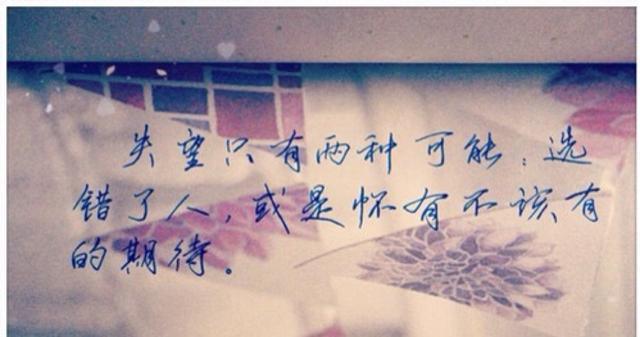 失望只有两种可能：选
错了人，或是怀有不该有
的期待。